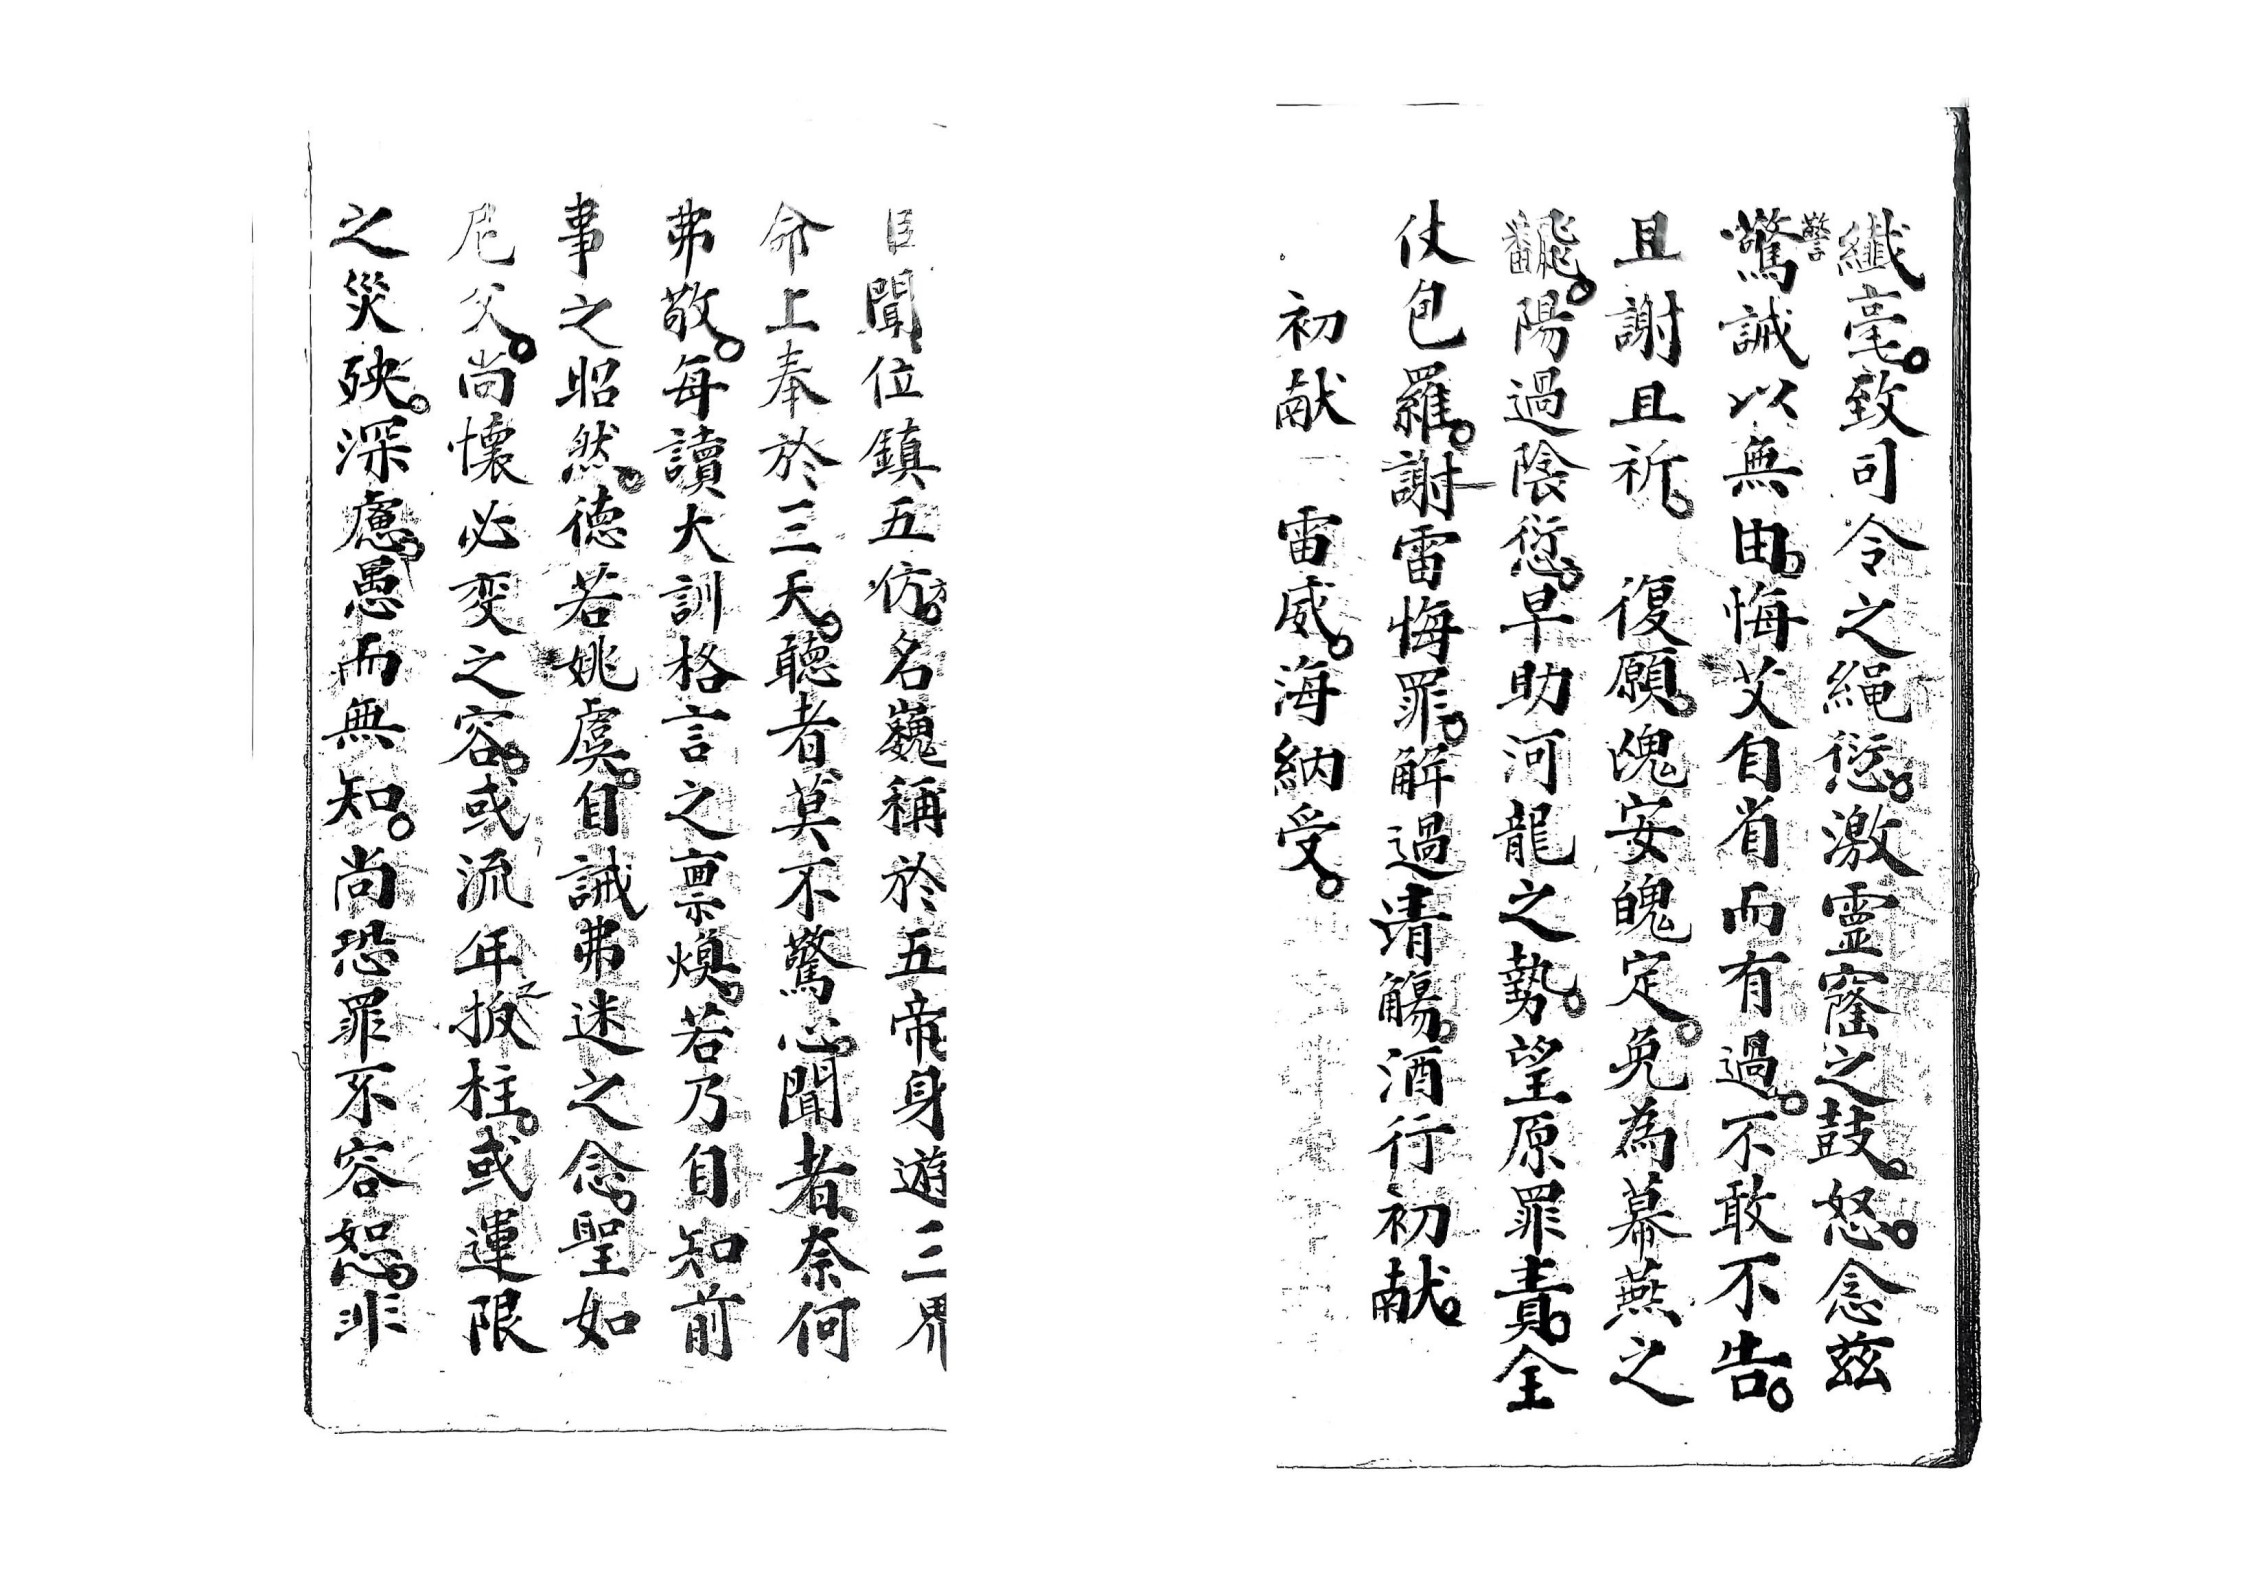 纖毫。致司令之繩愆。激靈窿之鼓。怒。念茲
警
驚誡以無由。悔艾自省而有過。不敢不告。
且謝且祈。復願。愧安魄定。免為幕燕之
飜。陽過陰愆。早助河龍之勢。望原罪責。全
仗包羅。謝雷悔罪。解過清觴。酒行初献。
初献 雷威。海納受。
聞位鎮五仿。名巍稱於五帝身遊三界
方
命上奉於三天。聽者莫不驚心。聞者奈何
弗敬。每讀大訓格言之禀煥。若乃自知前
事之昭然。德若姚虞。自誡弗迷之念。聖如
尼父。尚懷必変之容。或流年扳柱。或運限
之
之災殃。深慮。愚而無知。尚恐罪不容恕。非